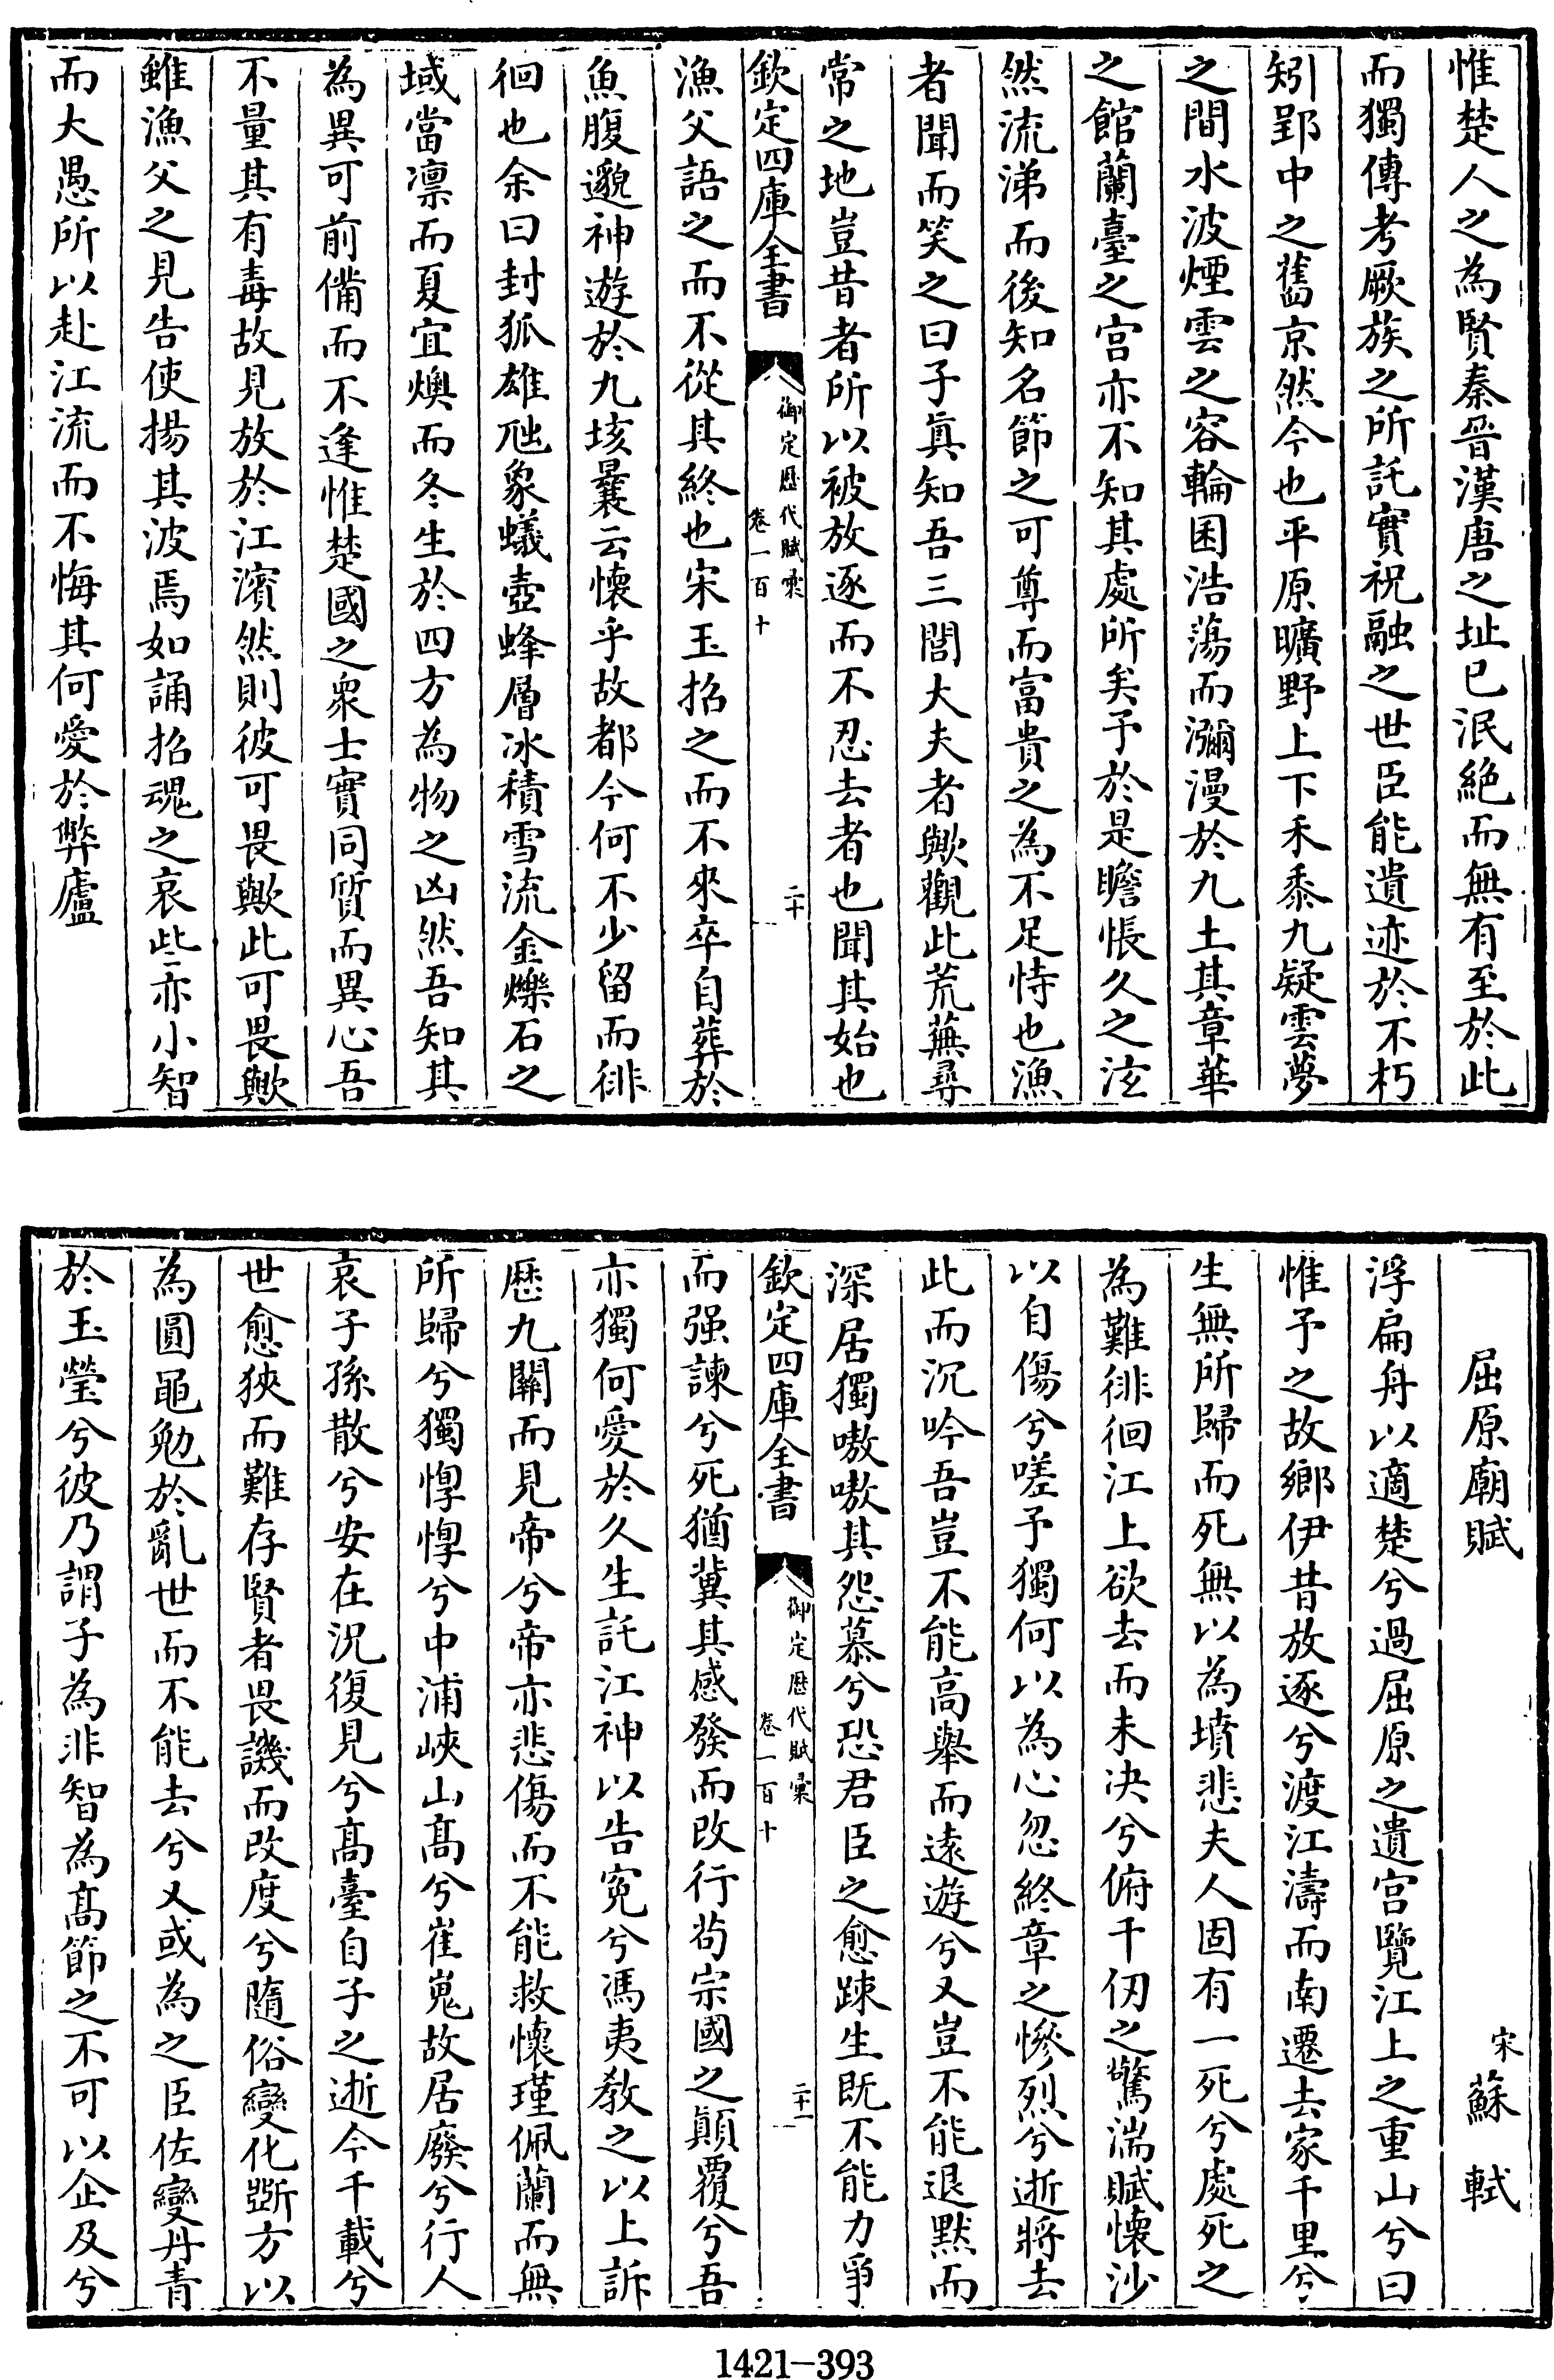 惟楚人之為賢秦晉漢唐之址已泯絶而無有至於此
而獨傳考厥族之所託實祝融之世臣能遺迹於不朽
矧郢中之舊京然今也平原曠野上下禾黍九疑雲夢
之間水波煙雲之容輪囷浩蕩而瀰漫於九土其章華
之館蘭臺之宫亦不知其處所矣予於是瞻悵久之泫
然流涕而後知名節之可尊而富貴之為不足恃也漁
者聞而笑之曰子真知吾三閭大夫者歟觀此荒蕪尋
常之地豈昔者所以被放逐而不忍去者也聞其始也
欽定四庫全書
御定歴代賦彙
卷一百十
二十
漁父語之而不從其終也宋玉招之而不來卒自葬於
魚腹邈神遊於九垓曩云懷乎故都今何不少留而徘
徊也余曰封狐雄虺象蟻壺蜂層冰積雪流金爍石之
域當凛而夏宜燠而冬生於四方為物之凶然吾知其
為異可前備而不逢惟楚國之衆士實同質而異心吾
不量其有毒故見放於江濱然則彼可畏歟此可畏歟
雖漁父之見告使揚其波焉如誦招魂之哀些亦小智
而大愚所以赴江流而不悔其何愛於弊廬
屈原廟賦
宋蘇軾
浮扁舟以適楚兮過屈原之遺宫覽江上之重山兮曰
惟予之故鄉伊昔放逐兮渡江濤而南遷去家千里兮
生無所歸而死無以為墳悲夫人固有一死兮處死之
為難徘徊江上欲去而未决兮俯千仞之驚湍賦懷沙
以自傷兮嗟予獨何以為心忽終章之慘烈兮逝將去
此而沉吟吾豈不能高舉而遠遊兮又豈不能退默而
深居獨嗷嗷其怨慕兮恐君臣之愈踈生既不能力爭
欽定四庫全書
御定歴代賦彙
卷一百十
二十一
而强諫兮死猶冀其感發而改行茍宗國之顛覆兮吾
亦獨何愛於久生託江神以告寃兮馮夷教之以上訴
歴九關而見帝兮帝亦悲傷而不能救懷瑾佩蘭而無
所歸兮獨惸惸兮中浦峽山髙兮崔嵬故居廢兮行人
哀子孫散兮安在况復見兮髙臺自子之逝今千載兮
世愈狹而難存賢者畏譏而改度兮隨俗變化斵方以
為圓黽勉於亂世而不能去兮又或為之臣佐變丹青
於玉瑩兮彼乃謂子為非智為髙節之不可以企及兮
1421-393